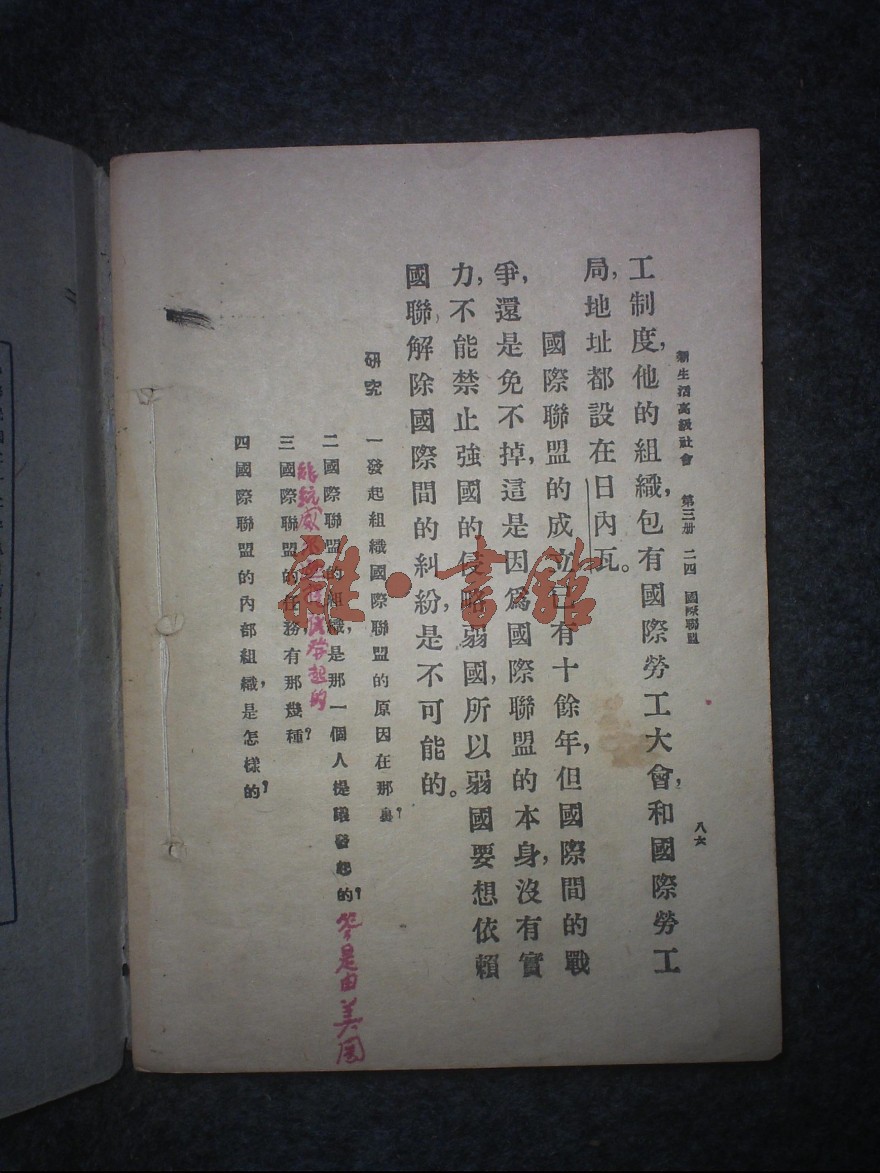 新生活高級社會　第三册　二四　國際聯盟
八六
工制度,他的組織,包有國際勞工大會,和國際勞工
局,地址都設在日內瓦。
國際聯盟的成立已有十餘年,但國際間的戰
爭,還是免不掉,這是因爲國際聯盟的本身,沒有實
力,不能禁止強國的侵略弱國,所以弱國要想依賴
國聯,解除國際間的糾紛,是不可能的。
研究　一發起組織國際聯盟的原因在那裏?
二國際聯盟的組織,是那一個人提議發起的?
答是由美国
統威
發起的
三國際聯盟的任務,有那幾種?
四國際聯盟的內部組織,是怎樣的?
雜·書館